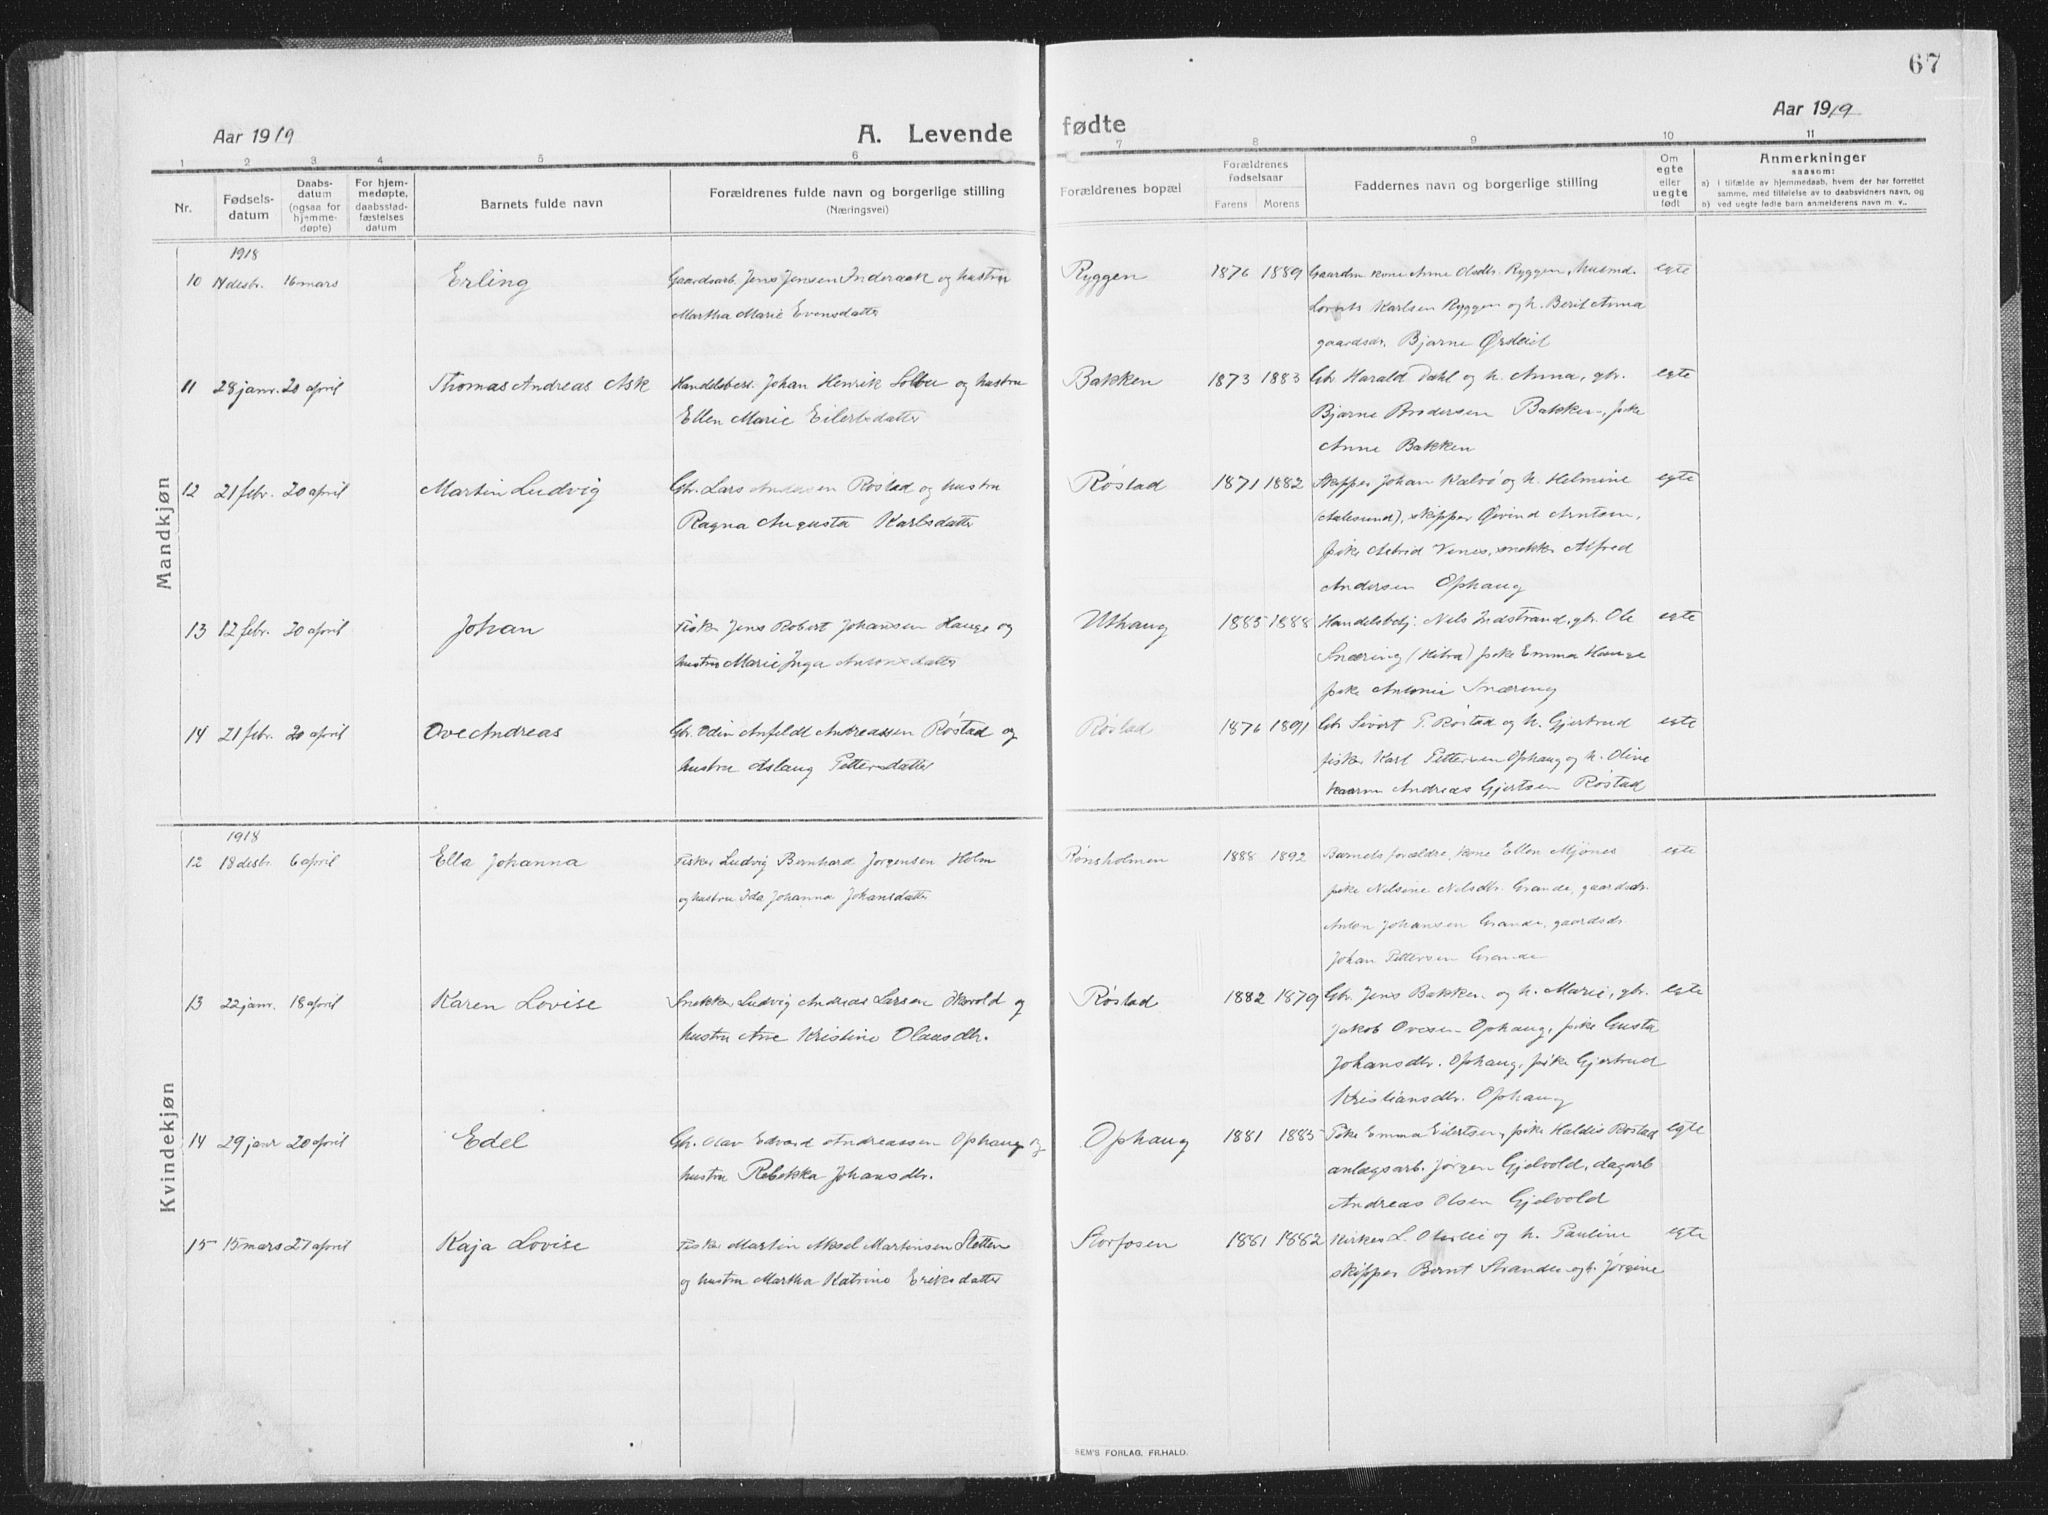 67
Aar 1919
A. Levende fødte
Aar 1919
1 2 3 4 5 6 7 8 9 10 11
Nr.
Fødsels-
datum
Daabs-
datum
(ogsaa for
hjemme-
døpte)
For hjem-
medøpte,
daabsstad-
fæstelses
datum
Barnets fulde navn
Forældrenes fulde navn og borgerlige stilling
(Næringsvei)
Forældrenes bopæl
Forældrenes
fødselsaar
Farens Morens
Faddernes navn og borgerlige stilling
Om
egte
eller
uegte
født
Anmerkninger
saasom:
a) I tilfælde av hjemmedaab, hvem der har forrettet
samme, med tilføielse av to daabsvidners navn, og
b) ved uegte fødte barn anmelderens navn m. v..
Mandkjøn
1918
10 desbr. 16 mars Erling Gaardsarb. Jens Jensen Inderaak og hustru Ryggen 1876 1889 Gaardm. kone Anne Olsdtr. Ryggen, husmd. egte
Martha Marie Evensdatter Karlsen Ryggen og h. Berit Anna
gaardsdr. Bjarne
11 28 janr. 20 april Thomas Andreas Ask Handelsbest. Johan Henrik Solbu og hustru Bakken 1873 1883 Gbr. Harald Dahl og h. Anna, gbr. egte
Ellen Marie Eilertsdatter Bjarne Brodersen Bakken, pike
Anne Bakken
12 21 febr. 20 april Martin Ludvig Gbr. Lars Andersen Røstad og hustru Røstad 1871 1882 Skipper Johan Kalvø og h. Helmine egte
Ragna Augusta Karlsdatter (Aalesund), skipper Øivind Arntsen,
pike Astrid Venes, snekker Alfred
Andersen Ophaug
13 12 febr. 20 april Johan Fisker Jens Robert Johansen Hauge og Uthaug 1885 1888 Handelsbetj. Nils Indstrand, gbr. Ole egte
hustru Marie Inga Antonsdatter Snæring (Hitra) pike Emma Hauge
pike Antonie Snæring
14 21 febr. 20 april Ove Andreas Gbr. Odin Anfeldt Andreassen Røstad og Røstad 1876 1891 Gbr. Sivert P. Røstad og h. Gjertrud egte
hustru Aslaug Pettersdatter fisker Karl Pettersen Ophaug og h. Oline
kaarm. Andreas Gjertsen Røstad
Kvindekjøn
1918
12 18 desbr. 6 april Ella Johanna Fisker Ludvig Bernhard Jørgensen Holm Rønsholmen 1888 1892 Barnets forældre, kone Ellen Mjønes egte
og hustru Ida Johanna Johansdatter pike Nilsine Nilsdtr. Grande, gaardsdr.
Anton Johansen Grande, gaardsdr.
Johan Pettersen Grande
13 22 janr. 18 april Karen Lovise Snekker Ludvig Andreas Larsen og Røstad 1882 1879 Gbr. Jens Bakken og h. Marie, gbr. egte
hustru Ane Kristine Olausdtr. Jakob Ovesen Ophaug, pike Gusta
Johansdtr. Ophaug, pike Gjertrud
Kristiansdtr. Ophaug
14 29 janr 20 april Edel Gbr. Olav Edvard Andreassen Ophaug og Ophaug 1881 1885 Pike Emma Eilertsen, pike Haldis Røstad egte
hustru Rebekka Johansdtr. anlægsarb. Jørgen Gjelvold, dagarb
Andreas Olsen Gjelvold
15 15 mars 27 april Kaja Lovise Fisker Martin Aksel Martinsen Sletten Storfosen 1881 1882 Kirkes. L. og h. Pauline egte
og hustru Martha Katrine Eriksdatter skipper Bernt Strande og h. Jørgine
SEM'S FORLAG, FR.HALD.